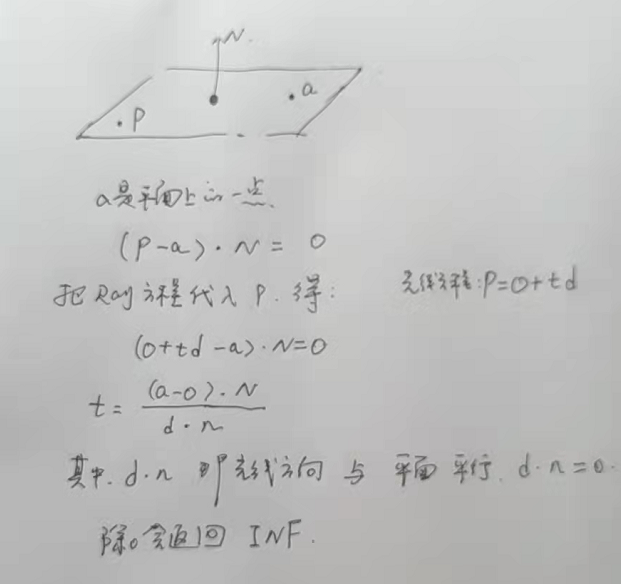 N.
a
P
a是平面上的一点.
(P-a)·N = 0
把 Ray 方程代入 P. 得:
光线方程:P=o+td
(o+td-a)·N=0
t= (a-o)·N / d·n
其中. d·n 即光线方向 与 平面 平行. d·n=0.
除0会返回 INF.